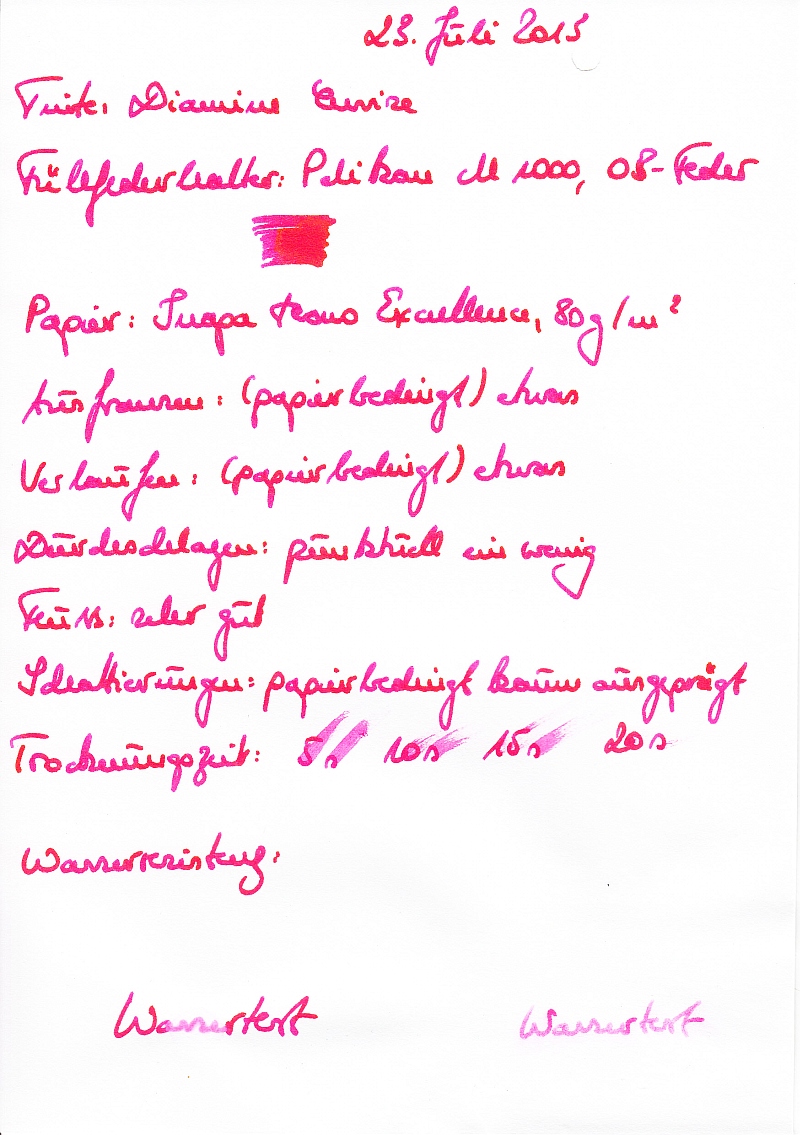 23. Juli 2013
Tinte: Diamine Cerise
Füllfederhalter: Pelikan M 1000, OB-Feder
Papier: Inapa tecno Excellence, 80g/m²
Ausfransen: (papierbedingt) etwas
Verlaufen: (papierbedingt) etwas
Durchschlagen: punktuell ein wenig
Fluss: sehr gut
Schattierungen: papierbedingt kaum ausgeprägt
Trocknungszeit: 5s 10s 15s 20s
Wasserresistenz:
Wassertest Wassertest